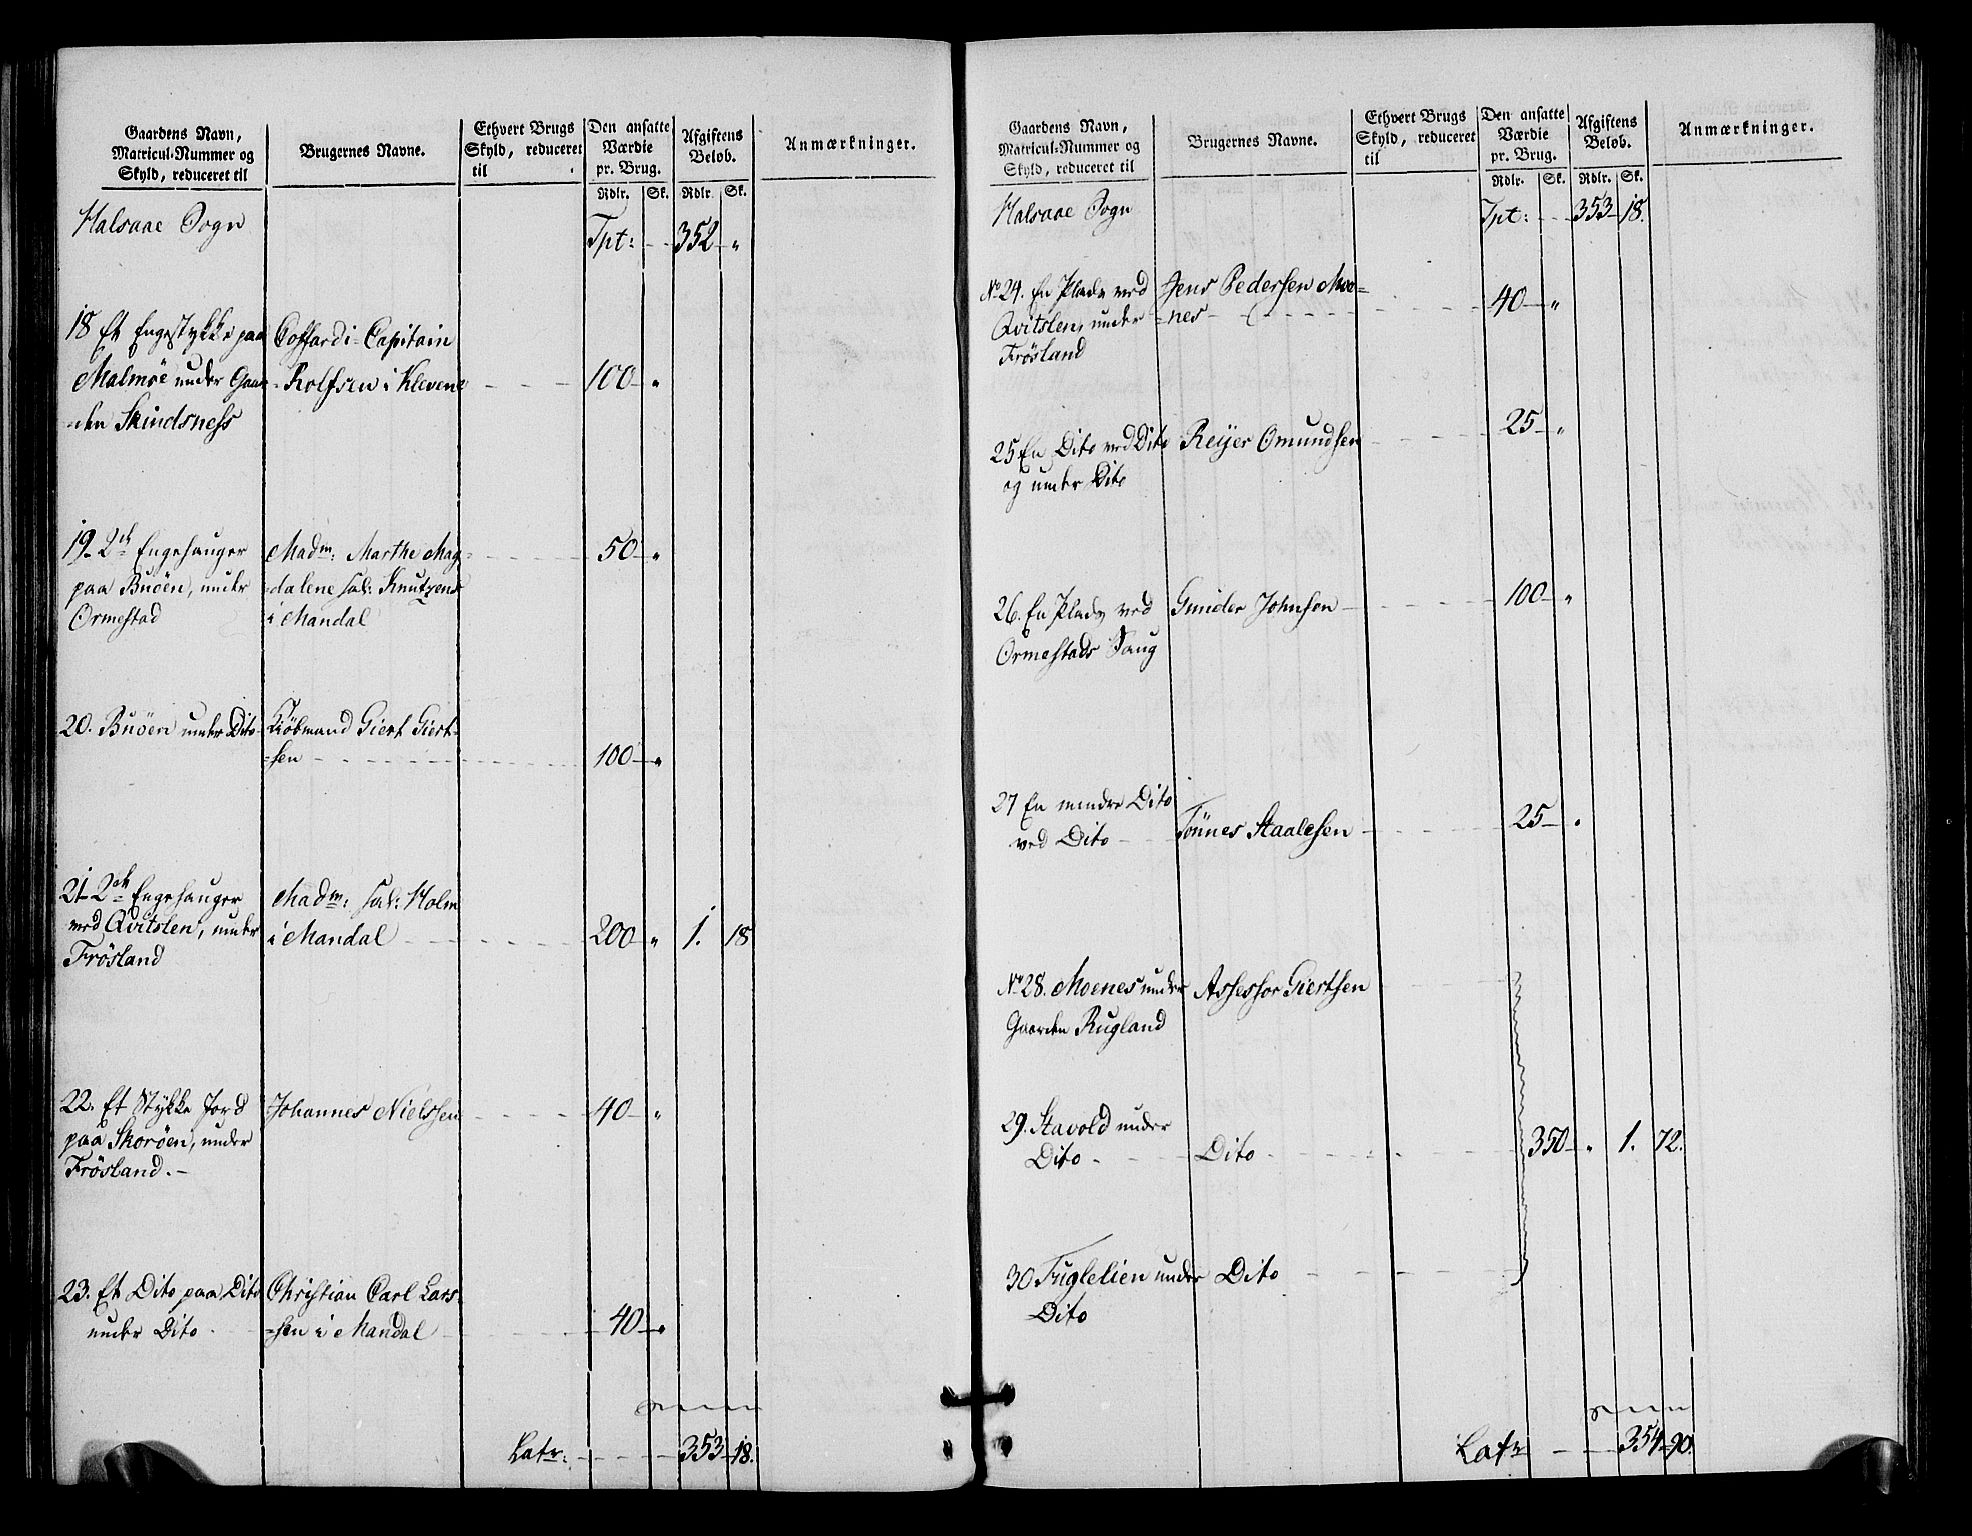 Gaardens Navn, Matricul-Nummer og Skyld, reduceret til
Brugernes Navne.
Ethvert Brugs Skyld, reduceret til
Den ansatte Værdie pr. Brug.
Afgiftens Beløb.
Anmærkninger.
Rdlr. Sk. Rdlr. Sk.
Halsaae Sogn Tpt: 352 "
18 Et Engestykke paa Coffardi-Capitain
Malmöe under Gaar- Rolfsen i Klevene 100 "
-den Skindsness
19. 2de Engehauger Madm: Marthe Mag-
paa Buöen, under -dalene sal: Knutzens 50 "
Ormestad i Mandal
20. Buöen under Dito Kiöbmand Giert Giert-
-sen 100 "
21. 2de Engehauger Madm: sal: Holm
ved Qvitslen, under i Mandal 200 " 1. 18
Frösland
22. Et Stykke Jord Johannes Nielssen 40 "
paa Skoröen, under
Frösland.
23. Et Dito paa Dito Christian Carl Lars-
under Dito -sen i Mandal 40 "
Latr: 353 18.
Gaardens Navn, Matricul-Nummer og Skyld, reduceret til
Brugernes Navne.
Ethvert Brugs Skyld, reduceret til
Den ansatte Værdie pr. Brug.
Afgiftens Beløb.
Anmærkninger.
Rdlr. Sk. Rdlr. Sk.
Halsaae Sogn Tpt: 353 18.
No 24. En Plads ved Jens Pedersen Moe-
Qvitslen, under -nes 40 "
Frösland
25 En Dito ved Dito Reijer Omundsen 25 "
og under Dito
26. En Plads ved Gunder Johnsen 100 "
Ormestads Saug
27 En mindre Dito
ved Dito Tönnes Staalesen 25 "
No 28. Moenes under Assessor Giertsen
Gaarden Rugland
29. Stavold under
Dito Dito 350 " 1. 72.
30 Fuglelien under Dito
Dito
Latr 354 90.